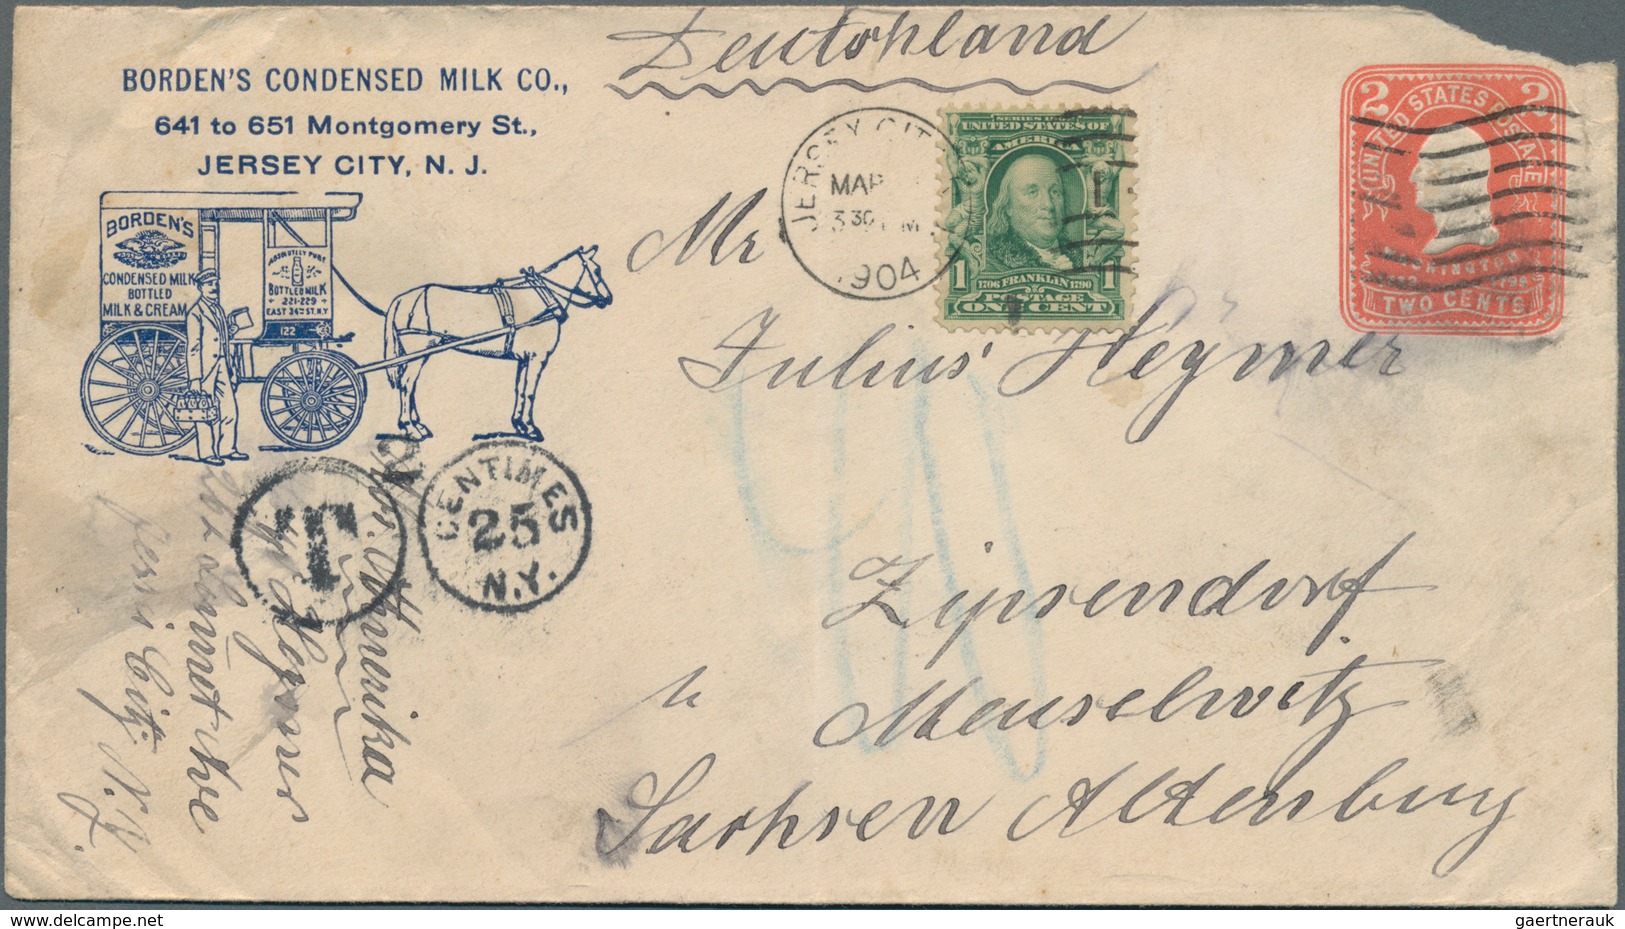 Deutschland
BORDEN'S CONDENSED MILK CO.,
641 to 651 Montgomery St.,
JERSEY CITY, N. J.
BORDEN'S
CONDENSED MILK
BOTTLED
MILK & CREAM
ABSOLUTELY PURE
BOTTLED MILK
221-229
EAST 34TH ST. N.Y
122
JERSEY CITY
MAR
3 30 PM
1904
UNITED STATES OF
AMERICA
1
1706 FRANKLIN 1790
POSTAGE
ONE CENT
2 2
UNITED STATES POSTAGE
TWO CENTS
Mr
Julius Heymer
Zipsendorf
b
Meuselwitz
Sachsen Altenburg
T
CENTIMES
25
N.Y.
Amerika
Heymer
City N.Y.
www.delcampe.net
gaertnerauk